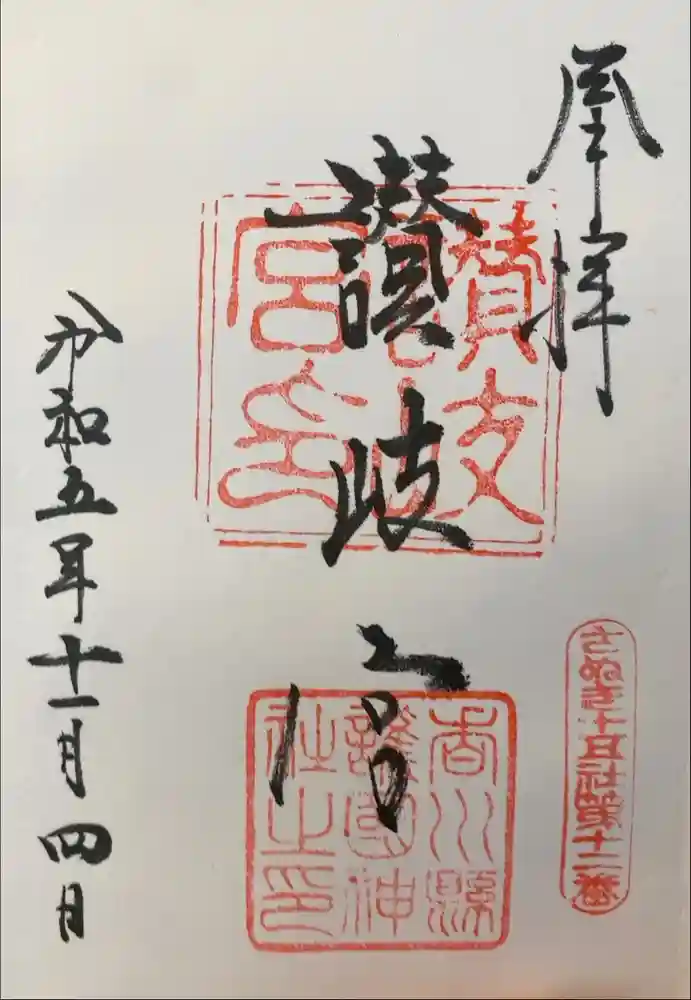 奉拝
讃岐宮
令和五年十一月四日
讃岐宮
香川縣
護國神
社之印
さぬき十五社第十二番